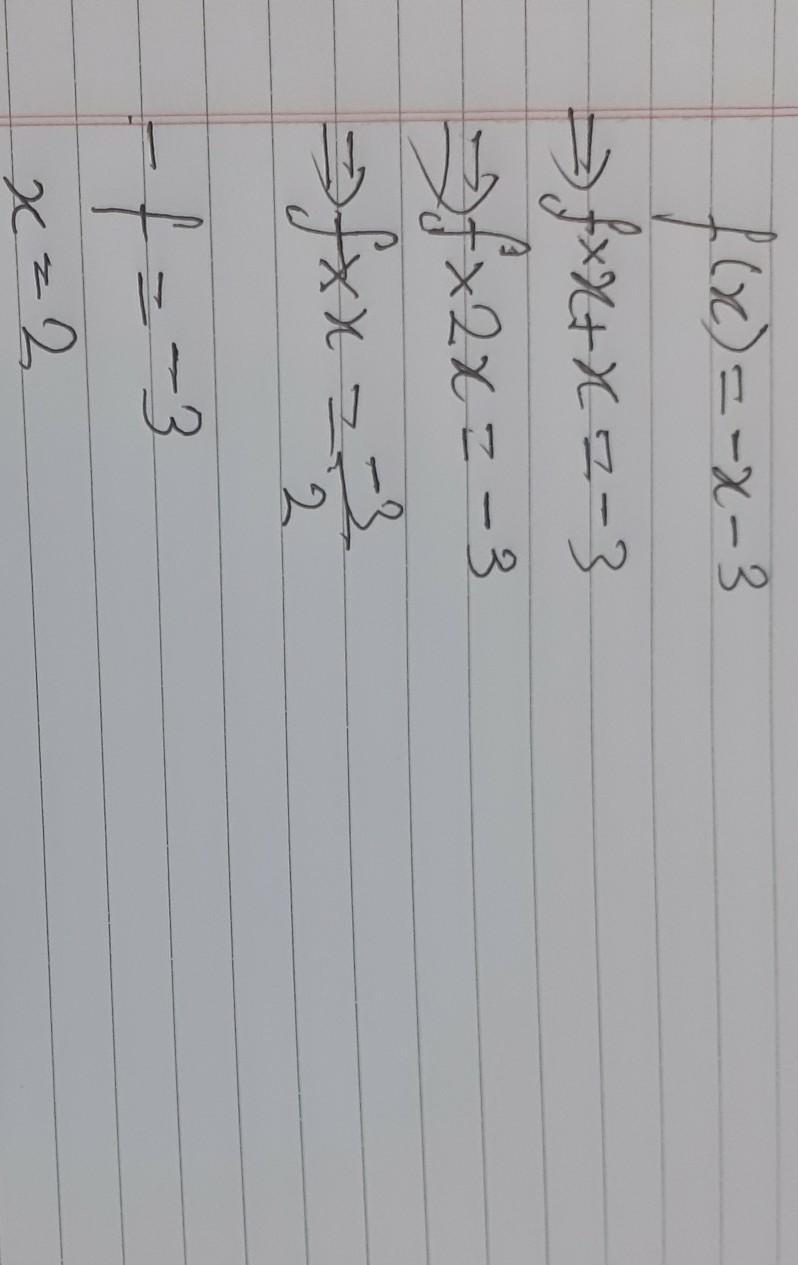 f(x) = -x - 3
⇒ f × x + x = -3
⇒ f × 2x = -3
⇒ f × x = -3/2
- f = -3
x = 2